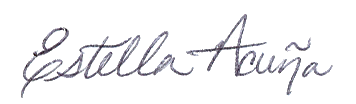 Estella Acuña